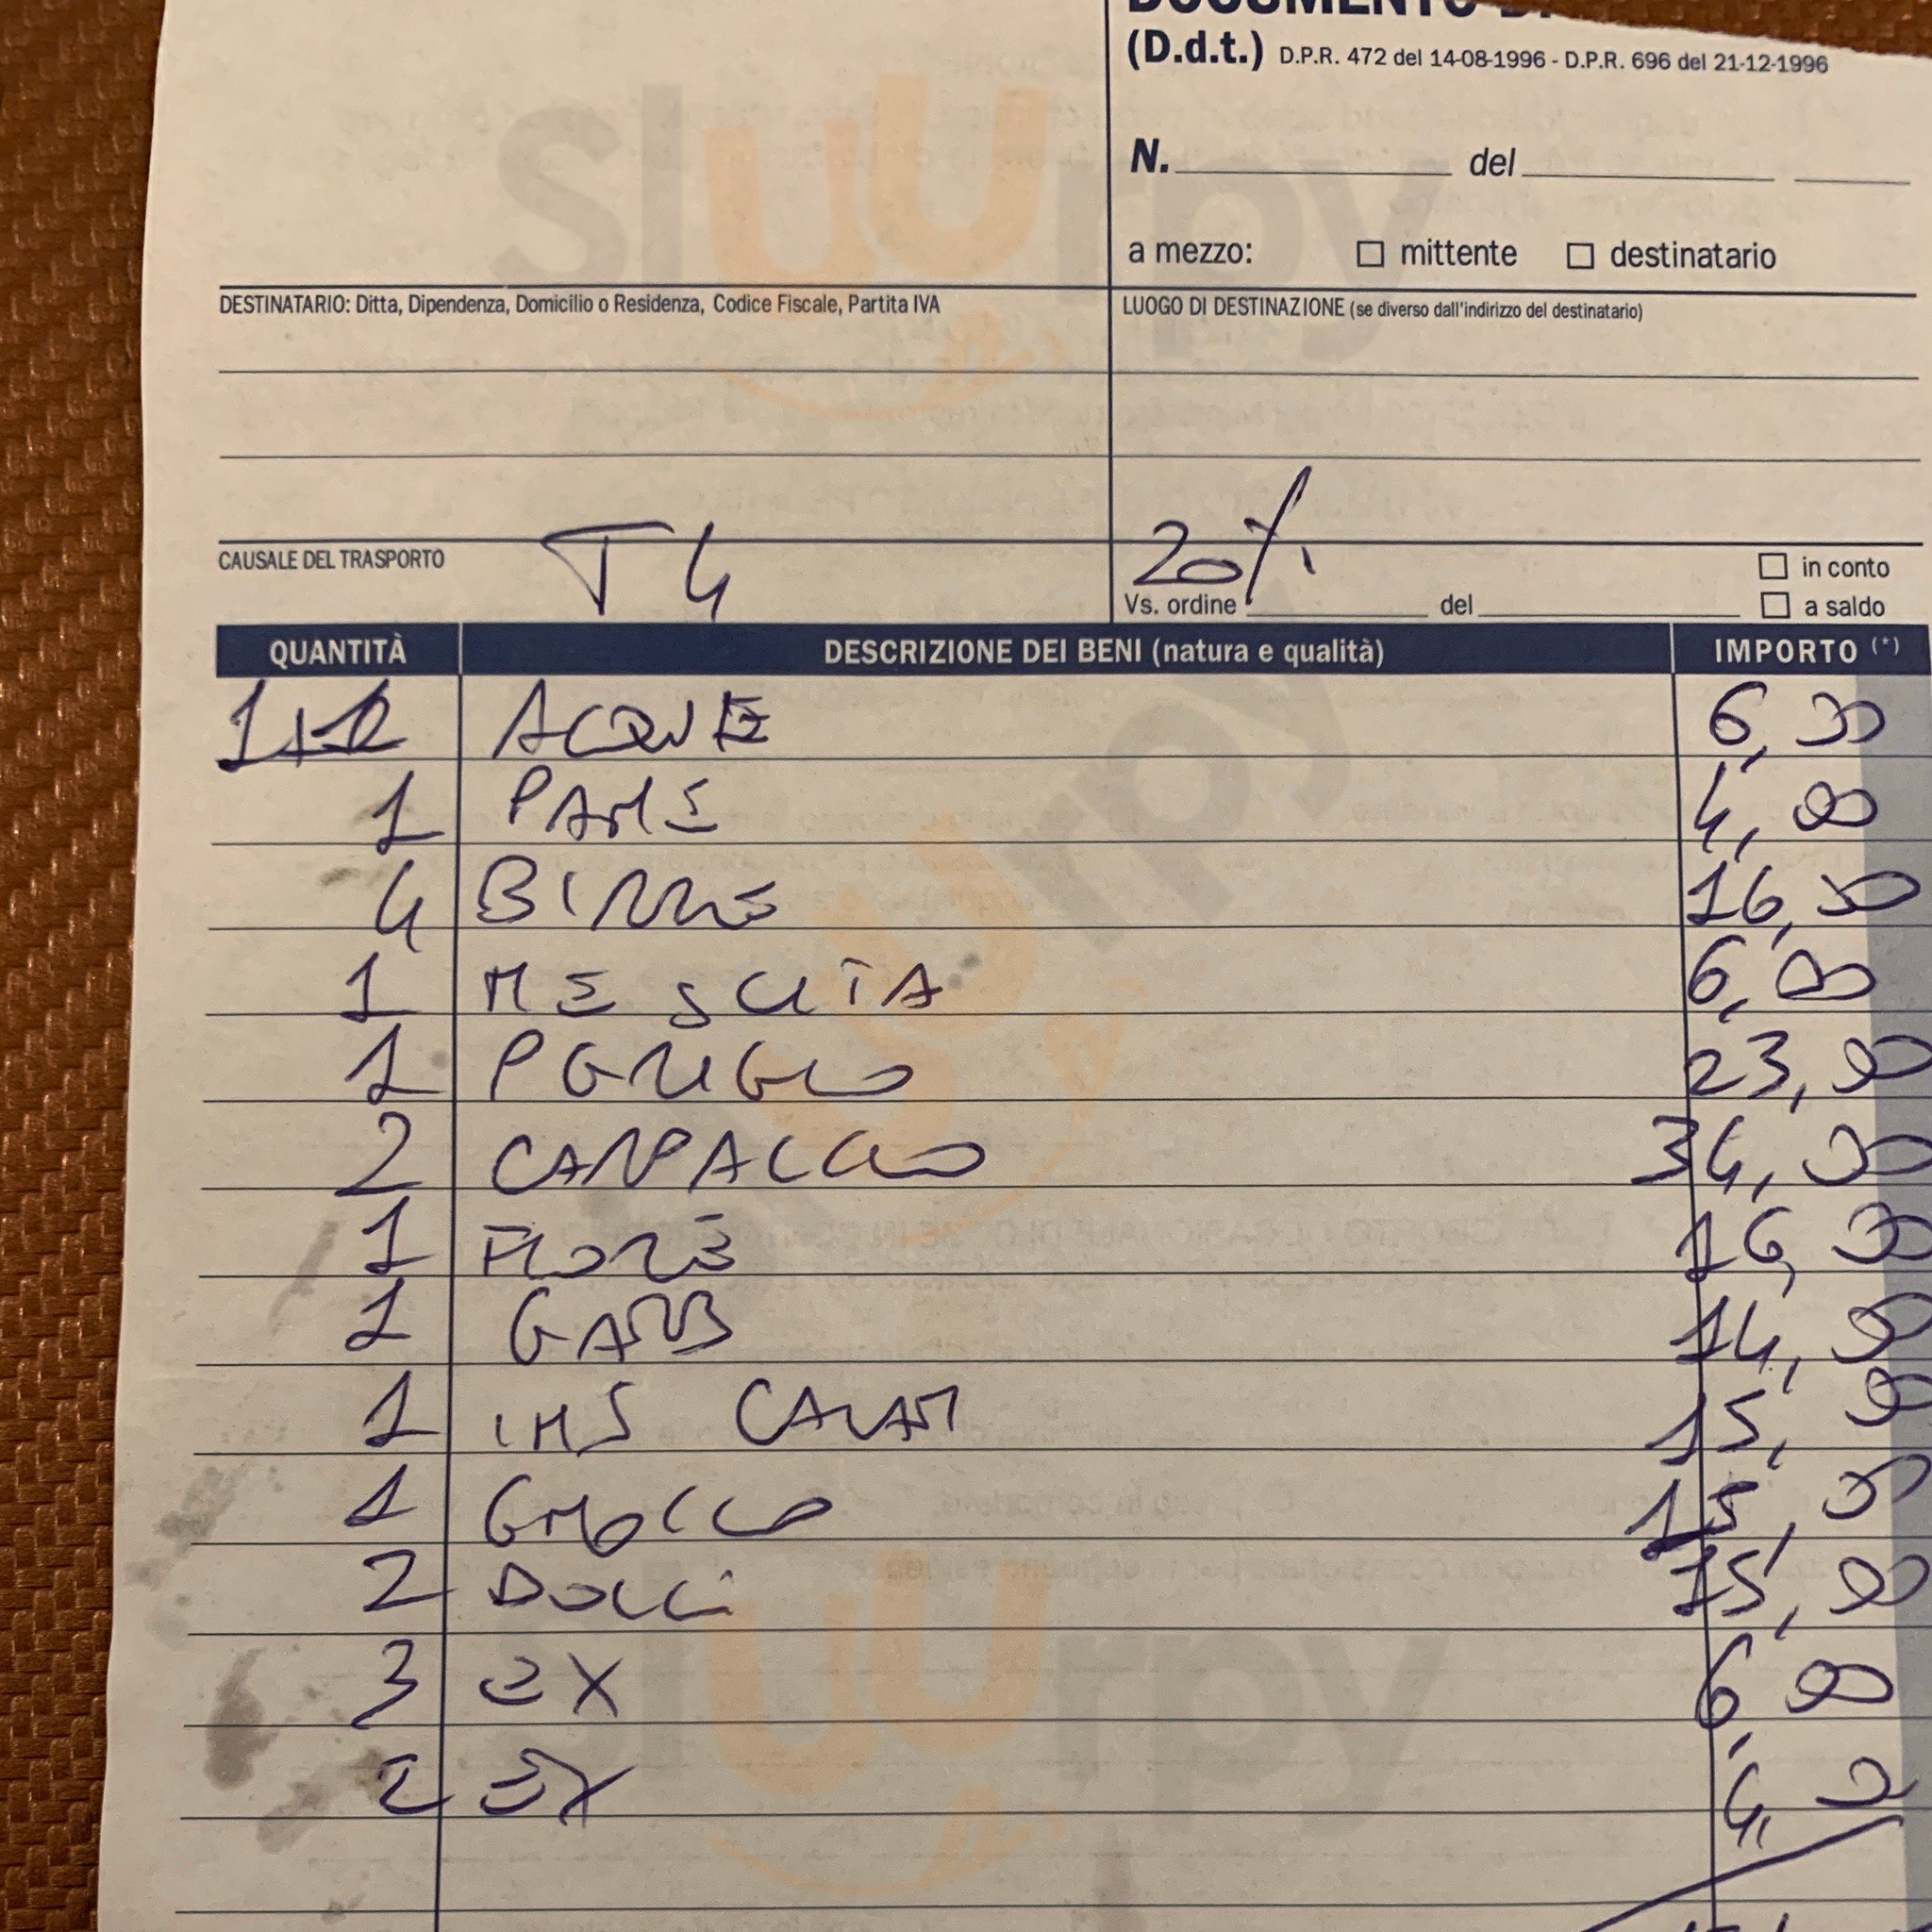 DOCUMENTO DI
(D.d.t.) D.P.R. 472 del 14-08-1996 - D.P.R. 696 del 21-12-1996
N. del
a mezzo: mittente destinatario
DESTINATARIO: Ditta, Dipendenza, Domicilio o Residenza, Codice Fiscale, Partita IVA
LUOGO DI DESTINAZIONE (se diverso dall'indirizzo del destinatario)
CAUSALE DEL TRASPORTO T4
20%
in conto
Vs. ordine del a saldo
QUANTITÀ DESCRIZIONE DEI BENI (natura e qualità) IMPORTO (*)
ACQUE 6,00
1 PANE 4,00
4 BIRRE 16,00
1 MESCITA 6,00
1 23,00
2 CARPACCIO 34,00
1 FIORE 16,00
1 GAMB 14,00
1 INS CALAM 15,00
1 GNOCCO 15,00
2 DOLCI 15,00
3 EX 6,00
2 EX 4,0
sluurpy
sluurpy
sluurpy